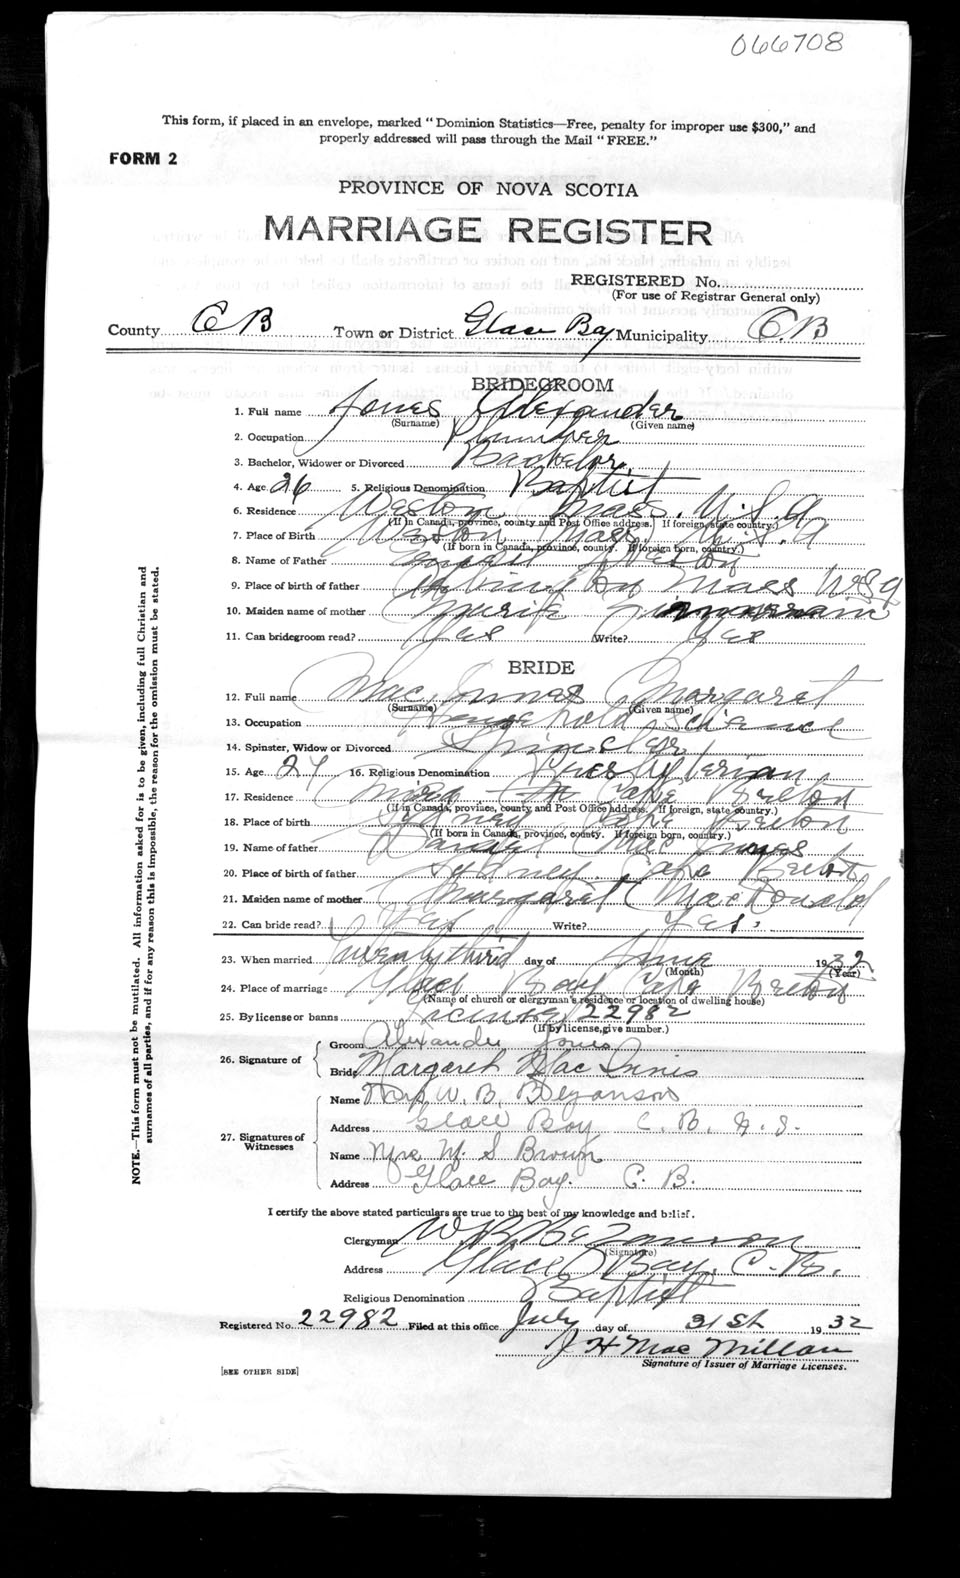 066708
This form, if placed in an envelope, marked "Dominion Statistics—Free, penalty for improper use $300," and
properly addressed will pass through the Mail "FREE."
FORM 2
PROVINCE OF NOVA SCOTIA
MARRIAGE REGISTER
REGISTERED No.
(For use of Registrar General only)
County C B Town or District Glace Bay Municipality C. B
BRIDEGROOM
1. Full name Jones Alexander
(Surname) (Given name)
2. Occupation Plumber
3. Bachelor, Widower or Divorced Bachelor
4. Age 26 5. Religious Denomination Baptist
6. Residence Weston Mass. U. S. A
(If in Canada, province, county and Post Office address. If foreign, state country.)
7. Place of Birth Weston Mass. U. S. A
(If born in Canada, province, county. If foreign born, country.)
8. Name of Father
9. Place of birth of father Mass U S A
10. Maiden name of mother
11. Can bridegroom read? Yes Write? Yes
BRIDE
12. Full name Mac Innes Margaret
(Surname) (Given name)
13. Occupation Household Science
14. Spinster, Widow or Divorced Spinster
15. Age 27 16. Religious Denomination Presbyterian
17. Residence Mira Cape Breton
(If in Canada, province, county and Post Office address. If foreign, state country.)
18. Place of birth Sydney Cape Breton
(If born in Canada, province, county. If foreign born, country.)
19. Name of father Mac Innes
20. Place of birth of father Sydney. Cape Breton
21. Maiden name of mother Margaret MacDonald
22. Can bride read? Yes Write? Yes.
23. When married Twenty third day of June 1932
(Month) (Year)
24. Place of marriage Glace Bay Cape Breton
(Name of church or clergyman's residence or location of dwelling house)
25. By license or banns License 22982
(If by license, give number.)
26. Signature of
Groom Alexander Jones
Bride Margaret Mac Innis
27. Signatures of Witnesses
Name Mrs W. B. Bezanson
Address Glace Bay C. B. N. S.
Name Mrs M. S Brown
Address Glace Bay. C. B.
I certify the above stated particulars are true to the best of my knowledge and belief.
Clergyman W B Bezanson
(Signature)
Address Glace Bay. C. B.
Religious Denomination Baptist
Registered No. 22982 Filed at this office July day of 31st 1932
J H MacMillan
Signature of Issuer of Marriage Licenses.
[SEE OTHER SIDE]
NOTE.—This form must not be mutilated. All information asked for is to be given, including full Christian and
surnames of all parties, and if for any reason this is impossible, the reason for the omission must be stated.